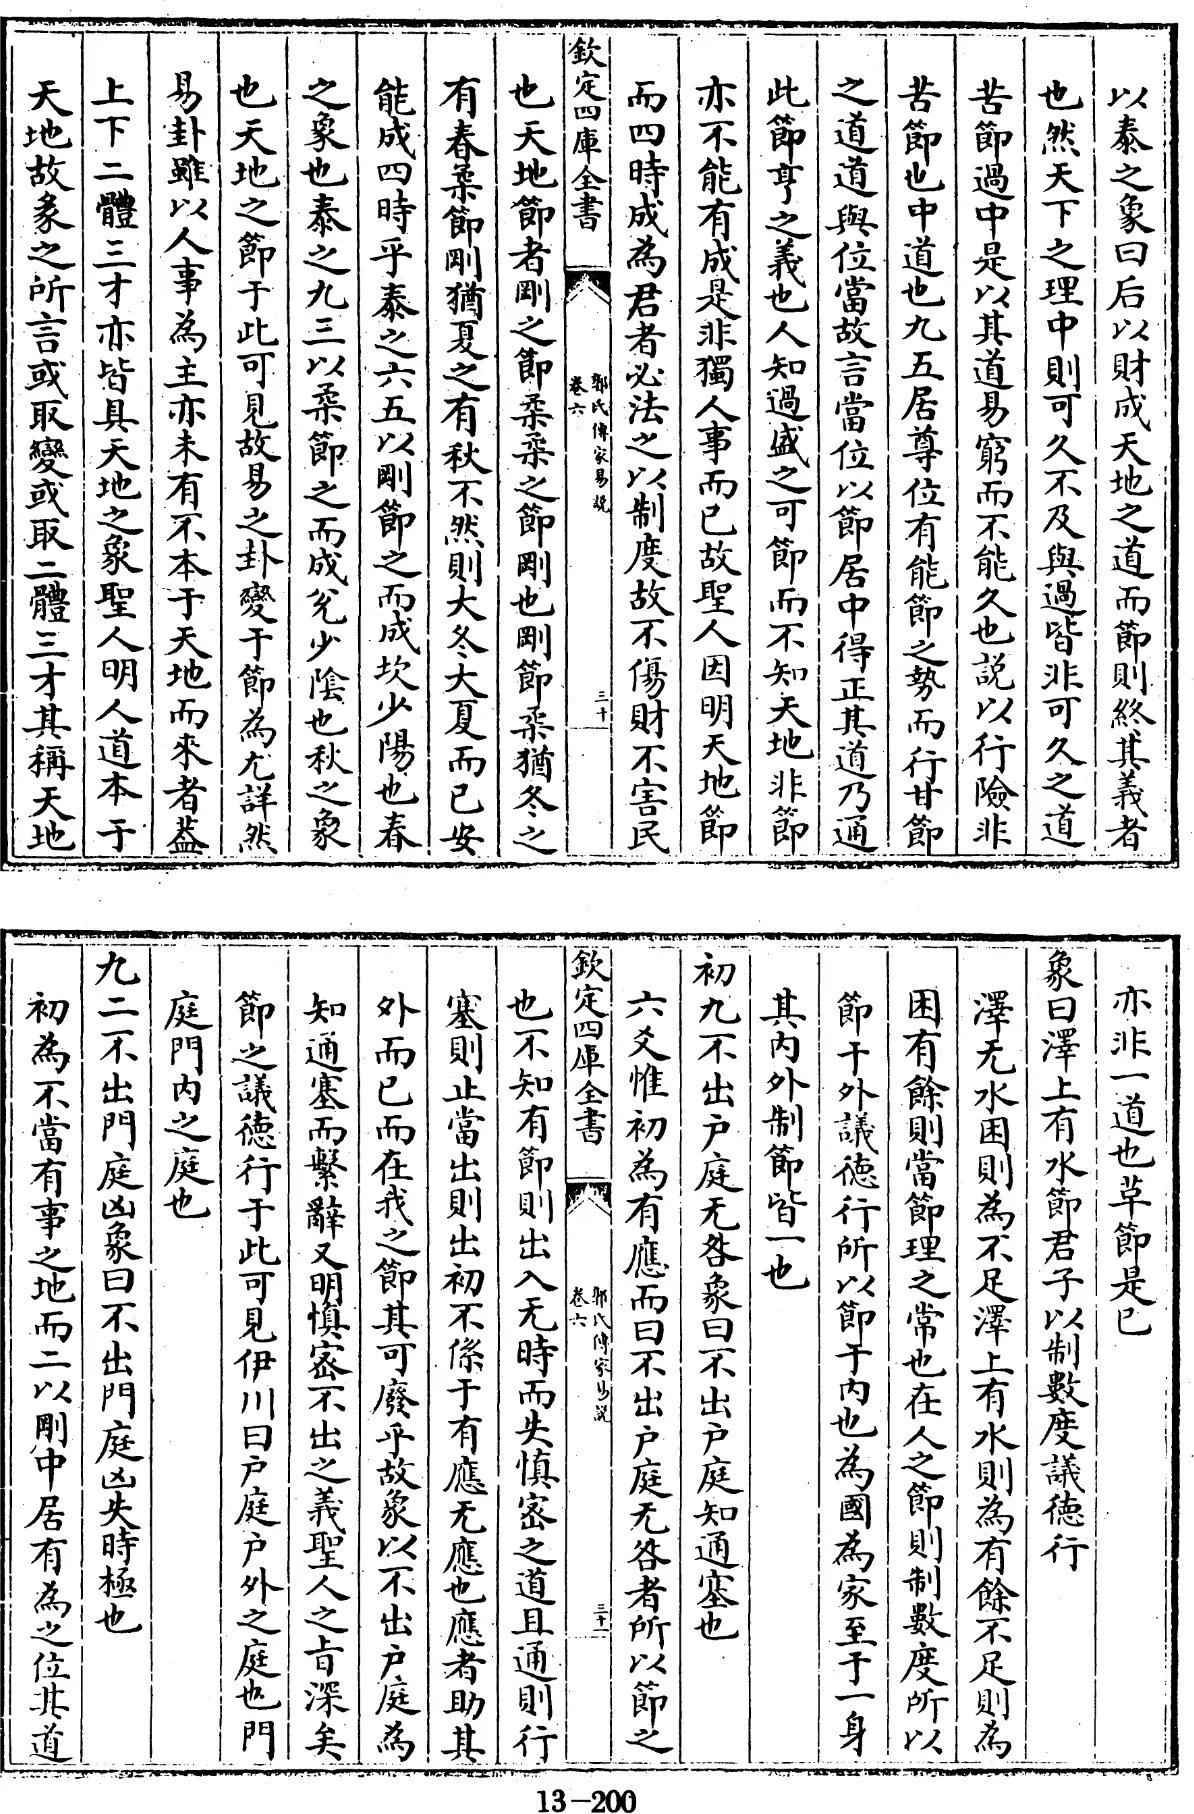 以泰之象曰后以財成天地之道而節則終其義者
也然天下之理中則可久不及與過皆非可久之道
苦節過中是以其道易窮而不能久也說以行險非
苦節也中道也九五居尊位有能節之勢而行甘節
之道道與位當故言當位以節居中得正其道乃通
此節亨之義也人知過盛之可節而不知天地非節
亦不能有成是非獨人事而已故聖人因明天地節
而四時成為君者必法之以制度故不傷財不害民
欽定四庫全書
郭氏傳家易說
卷六
三十
也天地節者剛之節柔柔之節剛也剛節柔猶冬之
有春柔節剛猶夏之有秋不然則大冬大夏而已安
能成四時乎泰之六五以剛節之而成坎少陽也春
之象也泰之九三以柔節之而成兊少陰也秋之象
也天地之節于此可見故易之卦變于節為尤詳然
易卦雖以人事為主亦未有不本于天地而來者葢
上下二體三才亦皆具天地之象聖人明人道本于
天地故彖之所言或取變或取二體三才其稱天地
亦非一道也草節是已
象曰澤上有水節君子以制數度議德行
澤无水困則為不足澤上有水則為有餘不足則為
困有餘則當節理之常也在人之節則制數度所以
節于外議德行所以節于内也為國為家至于一身
其内外制節皆一也
初九不出户庭无咎象曰不出户庭知通塞也
六爻惟初為有應而曰不出户庭无咎者所以節之
欽定四庫全書
郭氏傳家易說
卷六
三十一
也不知有節則出入无時而失慎密之道且通則行
塞則止當出則出初不係于有應无應也應者助其
外而已而在我之節其可廢乎故象以不出户庭為
知通塞而繫辭又明慎密不出之義聖人之旨深矣
節之議德行于此可見伊川曰户庭户外之庭也門
庭門内之庭也
九二不出門庭凶象曰不出門庭凶失時極也
初為不當有事之地而二以剛中居有為之位其道
13-200